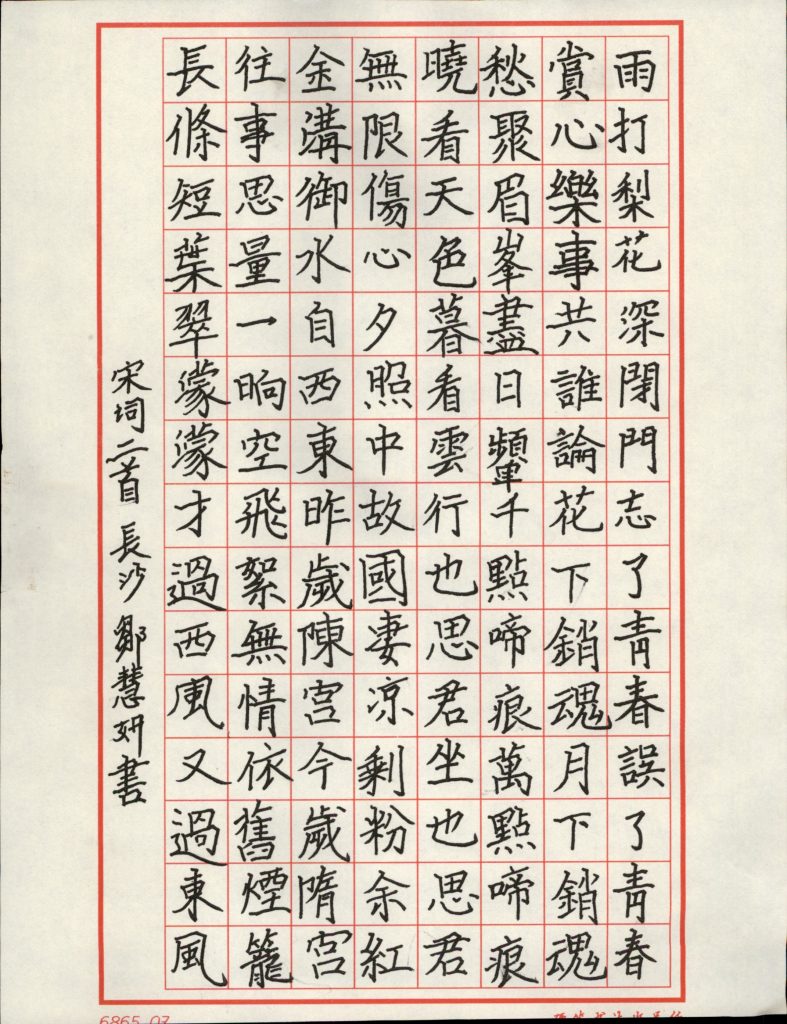 雨打梨花深閉門志了青春誤了青春
賞心樂事共誰論花下銷魂月下銷魂
愁聚眉峯盡日顰千點啼痕萬點啼痕
曉看天色暮看雲行也思君坐也思君
無限傷心夕照中故國凄涼剩粉余紅
金溝御水自西東昨歲陳宮今歲隋宮
往事思量一晌空飛絮無情依舊煙籠
長條短葉翠濛濛才過西風又過東風
宋词二首 長沙 鄒慧妍書
6865.07